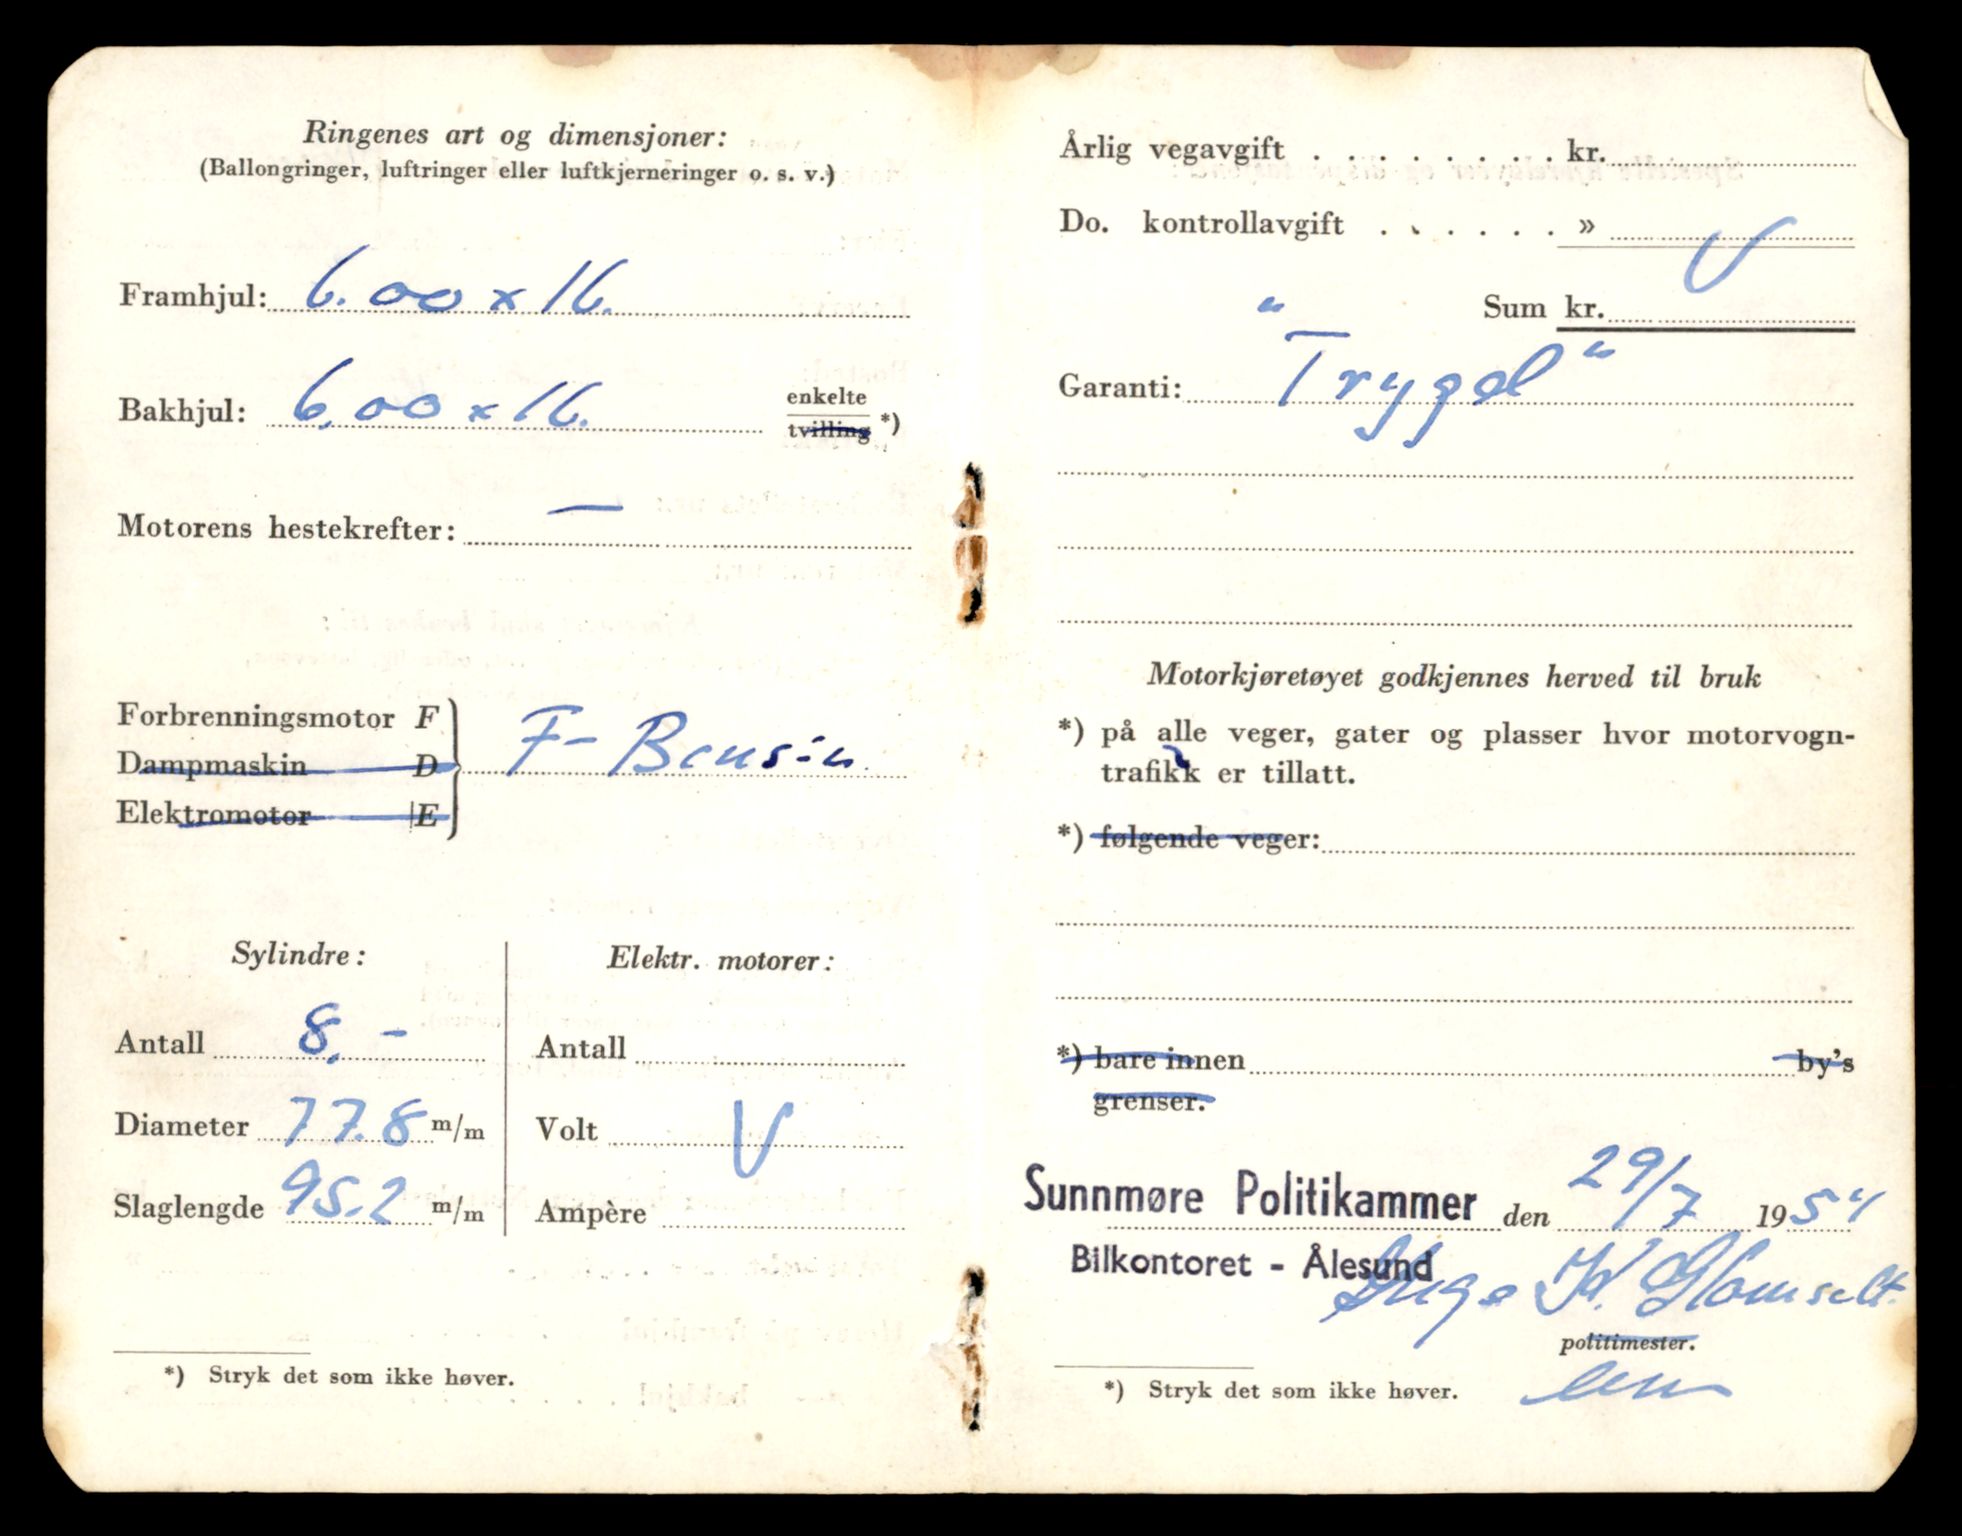 Ringenes art og dimensjoner:
(Ballongringer, luftringer eller luftkjerneringer o. s. v.)
Framhjul: 6.00 x 16.
Bakhjul: 6.00 x 16. enkelte
tvilling *)
Motorens hestekrefter: —
Forbrenningsmotor F
Dampmaskin D F- Bensin
Elektromotor E
Sylindre:
Antall 8.-
Diameter 77.8 m/m
Slaglengde 95.2 m/m
Elektr. motorer:
Antall
Volt
Ampère
*) Stryk det som ikke høver.
Årlig vegavgift . . . . . . . . kr.
Do. kontrollavgift . . . . . . »
Sum kr.
Garanti: "Trygd"
Motorkjøretøyet godkjennes herved til bruk
*) på alle veger, gater og plasser hvor motorvogn-
trafikk er tillatt.
*) følgende veger:
*) bare innen by's
grenser.
Sunnmøre Politikammer den 29/7 1954
Bilkontoret - Ålesund
politimester.
*) Stryk det som ikke høver.